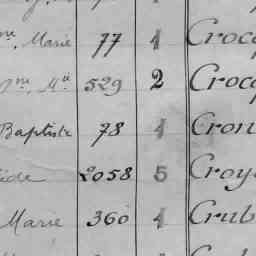 Marie 77 1 Croc
529 2 Croc
Baptiste 78 1 Cron
2058 5 Croy
Marie 360 4 Crub